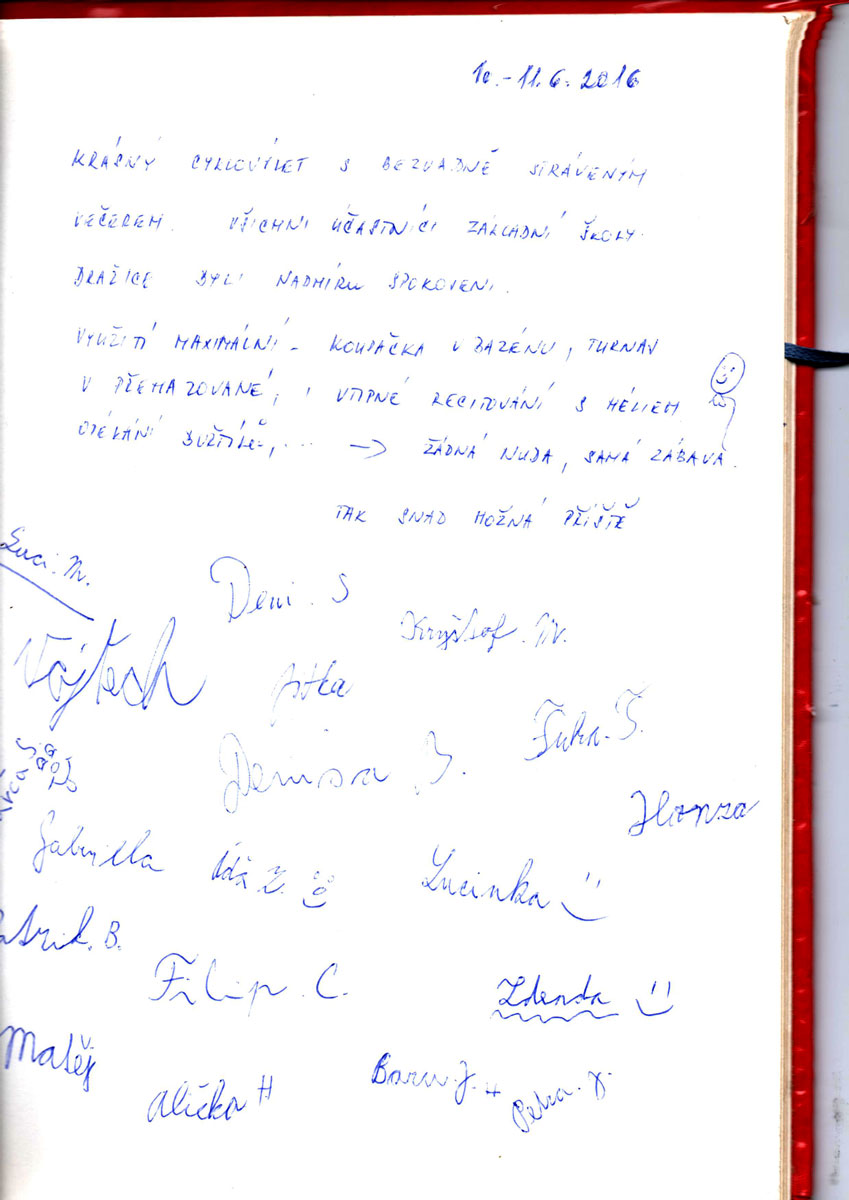 10.-11.6.2016
KRÁSNÝ CYKLOVÝLET S BEZVADNĚ STRÁVENÝM
VEČEREM. VŠICHNI ÚČASTNÍCI ZÁKLADNÍ ŠKOLY
DRAŽICE BYLI NADMÍRU SPOKOVENI.
VYUŽITÍ MAXIMÁLNÍ - KOUPAČKA V BAZÉNU, TURNAJ
V PŘEHAZOVANÉ, I VTIPNÉ RECITOVÁNÍ S HÉLIEM,
OPÉKÁNÍ BUŽTÍKŮ, ... → ŽÁDNÁ NUDA, SAMÁ ZÁBAVA.
TAK SNAD MOŽNÁ PŘÍŠTĚ
Luci. M.
Deni. S
Kryštof. W.
Vojtěch
Denisa
Honza
Gabriella
Lucinka
Filip C.
Zdenda
Matěj
Alička H
Baru. J. H
Petra. J.